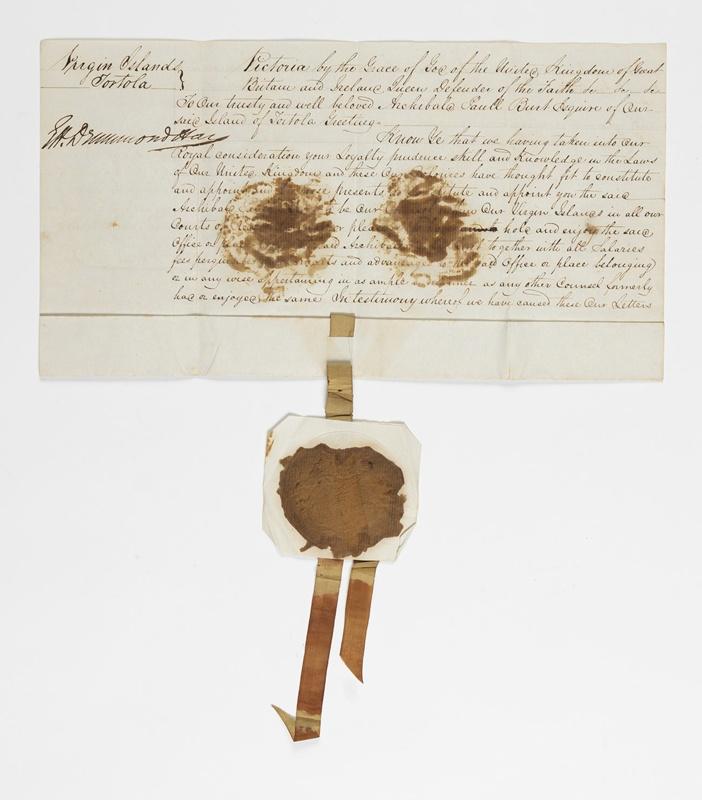 Virgin Islands }
Tortola
Victoria by the Grace of God of the United Kingdom of Great
Britain and Ireland Queen Defender of the Faith &c &c &c
To Our trusty and well beloved Archibald Paull Burt Esquire of Our
said Island of Tortola Greeting.
E H Drummond Hay
Know Ye that we having taken into Our
Royal consideration your Loyalty prudence skill and Knowledge in the Laws
of Our United Kingdom and these Our have thought fit to constitute
and appoint presents and appoint you the said
Archibald be Our Our Virgin Islands in all our
Courts of or hold and enjoy the said
Office or said Archibald together with all Salaries
fees and advantages said Office or place belonging
or in any wise appertaining in as ample as any other Counsel formerly
had or enjoyed the same. In testimony whereof we have caused these Our Letters